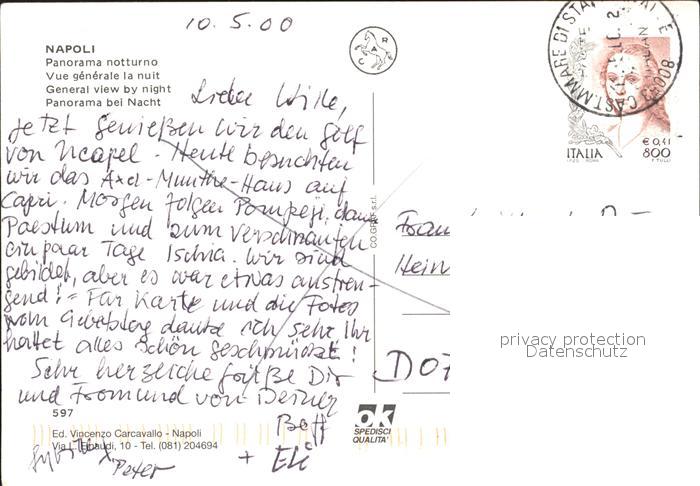 10. 5. 00
NAPOLI
Panorama notturno
Vue générale la nuit
General view by night
Panorama bei Nacht
Jetzt genießen wir den Golf
von Neapel. Heute besuchten
wir das Axel-Munthe-Haus auf
Capri. Morgen folgen Pompeji, dann
Paestum und zum Verschnaufen
ein paar Tage Ischia. Wir sind
gebildet, aber es war etwas anstren-
gend! - Für Karte und die Fotos
vom Geburtstag danke ich sehr. Ihr
hattet alles schön geschmückt!
Sehr herzliche Grüße Dir
und von Deiner
+ Eli
Peter
CO.GRAF s.r.l.
ITALIA
€ 0,41
800
F. TULLI
I.P.Z.S. ROMA
80053 CAST.MMARE DI STABIA
Frau
Hein
D 07
privacy protection
Datenschutz
597
Ed. Vincenzo Carcavallo - Napoli
Via L. Einaudi, 10 - Tel. (081) 204694
ok
SPEDISCI
QUALITA'